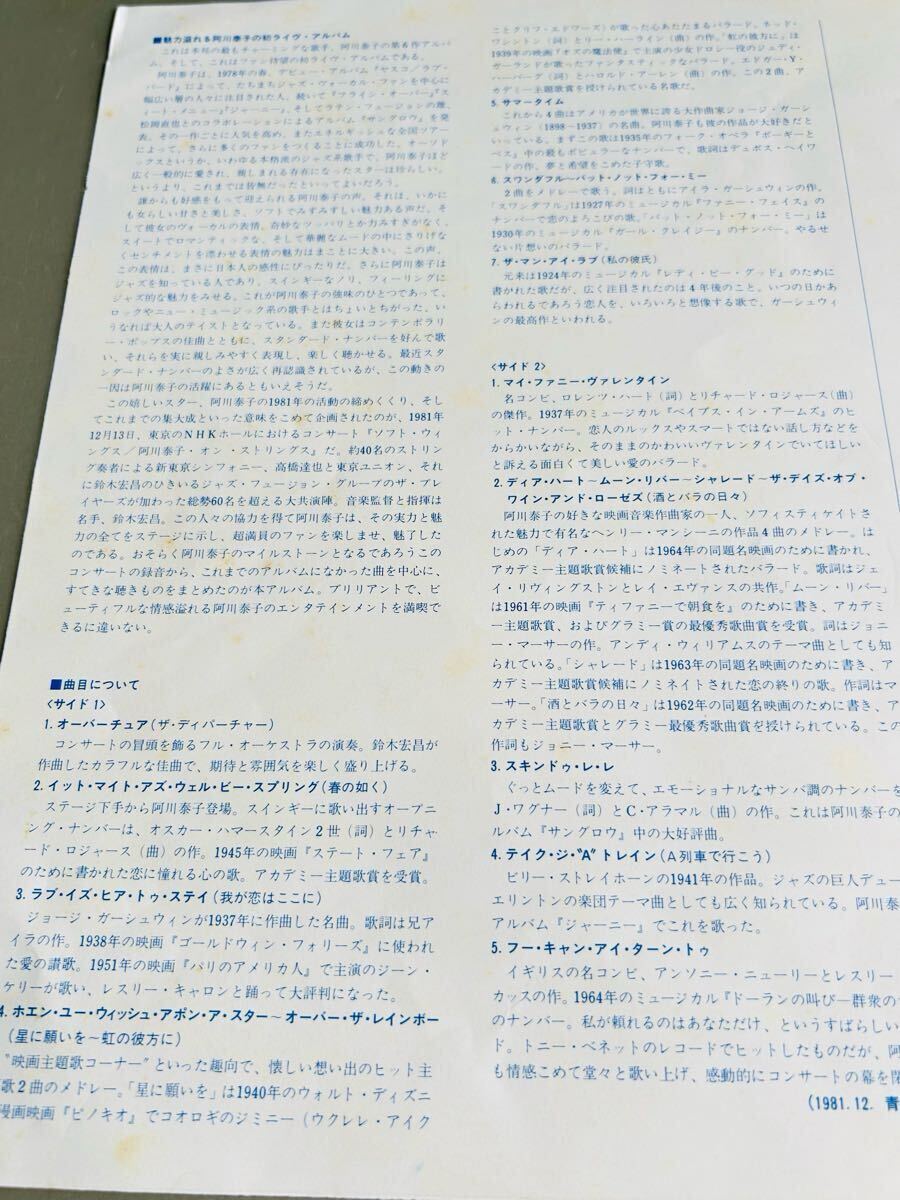 ■魅力溢れる阿川泰子の初ライヴ・アルバム
これは本邦の最もチャーミングな歌手、阿川泰子の第6作アルバ
ム、そして、これはファン待望の初ライヴ・アルバムである。
阿川泰子は、1978年の春、デビュー・アルバム『ヤスコ/ラブ・
バード』によって、たちまちジャズ・ヴォーカル・ファンを中心に
幅広い層の人々に注目された人、続いて『フライン・オーバー』『ス
ィート・メニュー』『ジャーニー』、そしてラテン・フュージョンの雄、
松岡直也とのコラボレーションによるアルバム『サングロウ』を発
表、その一作ごとに人気を高め、またエネルギッシュな全国ツアー
によって、さらに多くのファンをつくることに成功した。オーソド
ックスというか、いわゆる本格派のジャズ系歌手で、阿川泰子ほど
広く一般的に愛され、親しまれる存在になったスターは珍らしい。
というより、これまでは皆無だったといってよいだろう。
誰からも好感をもって迎えられる阿川泰子の声。それは、いかに
も女らしい甘さと美しさ、ソフトでみずみずしい魅力ある声だ。そ
して彼女のヴォーカルの表情、奇妙なツッパリとか力みすぎがなく、
スイートでロマンティックな、そして華麗なムードの中にさりげな
くセンチメントを漂わせる表情の魅力はまことに大きい。この声、
この表情は、まさに日本人の感性にぴったりだ。さらに阿川泰子は
ジャズを知っている人であり、スインギーなソリ、フィーリングに
ジャズ的な魅力をみせる。これが阿川泰子の強味のひとつであって、
ロックやニュー・ミュージック系の歌手とはちょいとちがった、い
うなれば大人のテイストとなっている。また彼女はコンテンポラリ
ー・ポップスの佳曲とともに、スタンダード・ナンバーを好んで歌
い、それらを実に親しみやすく表現し、楽しく聴かせる。最近スタ
ンダード・ナンバーのよさが広く再認識されているが、この動きの
一因は阿川泰子の活躍にあるともいえそうだ。
この嬉しいスター、阿川泰子の1981年の活動の締めくくり、そし
てこれまでの集大成といった意味をこめて企画されたのが、1981年
12月13日、東京のNHKホールにおけるコンサート『ソフト・ウィ
ングス/阿川泰子・オン・ストリングス』だ。約40名のストリン
グ奏者による新東京シンフォニー、高橋達也と東京ユニオン、それ
に鈴木宏昌のひきいるジャズ・フュージョン・グループのザ・プレ
イヤーズが加わった総勢60名を超える大共演陣。音楽監督と指揮は
名手、鈴木宏昌。この人々の協力を得て阿川泰子は、その実力と魅
力の全てをステージに示し、超満員のファンを楽しませ、魅了した
のである。おそらく阿川泰子のマイルストーンとなるであろうこの
コンサートの録音から、これまでのアルバムになかった曲を中心に、
すてきな聴きものをまとめたのが本アルバム。ブリリアントで、ビ
ューティフルな情感溢れる阿川泰子のエンタテインメントを満喫で
きるに違いない。
■曲目について
〈サイド1〉
1. オーバーチュア(ザ・ディパーチャー)
コンサートの冒頭を飾るフル・オーケストラの演奏。鈴木宏昌が
作曲したカラフルな佳曲で、期待と雰囲気を楽しく盛り上げる。
2. イット・マイト・アズ・ウェル・ビー・スプリング(春の如く)
ステージ下手から阿川泰子登場。スインギーに歌い出すオープニ
ング・ナンバーは、オスカー・ハマースタイン2世(詞)とリチャ
ード・ロジャース(曲)の作。1945年の映画『ステート・フェア』
のために書かれた恋に憧れる心の歌。アカデミー主題歌賞を受賞。
3. ラブ・イズ・ヒア・トゥ・ステイ(我が恋はここに)
ジョージ・ガーシュウィンが1937年に作曲した名曲。歌詞は兄ア
イラの作。1938年の映画『ゴールドウィン・フォリーズ』に使われ
た愛の讃歌。1951年の映画『パリのアメリカ人』で主演のジーン・
ケリーが歌い、レスリー・キャロンと踊って大評判になった。
4. ホエン・ユー・ウィッシュ・アポン・ア・スター〜オーバー・ザ・レインボー
(星に願いを〜虹の彼方に)
“映画主題歌コーナー”といった趣向で、懐しい想い出のヒット主
歌2曲のメドレー。「星に願いを」は1940年のウォルト・ディズニ
漫画映画『ピノキオ』でコオロギのジミニー(ウクレレ・アイク
ことクリフ・エドワーズ)が歌った心あたたまるバラード。ネッド・
ワシントン(詞)とリー・ハーライン(曲)の作。「虹の彼方に」は
1939年の映画『オズの魔法使』で主演の少女ドロシー役のジュディ・
ガーランドが歌ったファンタスティックなバラード。エドガー・Y・
ハーバーグ(詞)とハロルド・アーレン(曲)の作。この2曲、ア
カデミー主題歌賞を授けられている名歌だ。
5. サマータイム
これから4曲はアメリカが世界に誇る大作曲家ジョージ・ガーシ
ュウィン(1898〜1937)の名曲。阿川泰子も彼の作品が大好きだと
いっている。まずこの歌は1935年のフォーク・オペラ『ポーギーと
ベス』中の最もポピュラーなナンバーで、歌詞はデュボス・ヘイワ
ードの作。夢と希望をこめた子守歌。
6. スワンダフル〜バット・ノット・フォー・ミー
2曲をメドレーで歌う。詞はともにアイラ・ガーシュウィンの作。
「スワンダフル」は1927年のミュージカル『ファニー・フェイス』の
ナンバーで恋のよろこびの歌。「バット・ノット・フォー・ミー」は
1930年のミュージカル『ガール・クレイジー』のナンバー。やるせ
ない片想いのバラード。
7. ザ・マン・アイ・ラブ(私の彼氏)
元来は1924年のミュージカル『レディ・ビー・グッド』のために
書かれた歌だが、広く注目されたのは4年後のこと。いつの日かあ
らわれるであろう恋人を、いろいろと想像する歌で、ガーシュウィ
ンの最高作といわれる。
〈サイド2〉
1. マイ・ファニー・ヴァレンタイン
名コンビ、ロレンツ・ハート(詞)とリチャード・ロジャース(曲)
の傑作。1937年のミュージカル『ベイブス・イン・アームズ』のヒ
ット・ナンバー。恋人のルックスやスマートではない話し方などを
からかいながら、そのままのかわいいヴァレンタインでいてほしい
と訴える面白くて美しい愛のバラード。
2. ディア・ハート〜ムーン・リバー〜シャレード〜ザ・デイズ・オブ・
ワイン・アンド・ローゼズ(酒とバラの日々)
阿川泰子の好きな映画音楽作家の一人、ソフィスティケイトさ
れた魅力で有名なヘンリー・マンシーニの作品4曲のメドレー。は
じめの「ディア・ハート」は1964年の同題名映画のために書かれ、
アカデミー主題歌賞候補にノミネートされたバラード。歌詞はジェ
イ・リヴィングストンとレイ・エヴァンスの共作。「ムーン・リバー」
は1961年の映画『ティファニーで朝食を』のために書き、アカデミ
ー主題歌賞、およびグラミー賞の最優秀歌曲賞を受賞。詞はジョニ
ー・マーサーの作。アンディ・ウィリアムスのテーマ曲としても知
られている。「シャレード」は1963年の同題名映画のために書き、ア
カデミー主題歌賞候補にノミネイトされた恋の終りの歌。作詞はマ
ーサー。「酒とバラの日々」は1962年の同題名映画のために書き、ア
カデミー主題歌賞とグラミー最優秀歌曲賞を授けられている。この
作詞もジョニー・マーサー。
3. スキンドゥ・レ・レ
ぐっとムードを変えて、エモーショナルなサンバ調のナンバーを
J・ワグナー(詞)とC・アラマル(曲)の作。これは阿川泰子の
ルバム『サングロウ』中の大好評曲。
4. テイク・ジ・“A”トレイン(A列車で行こう)
ビリー・ストレイホーンの1941年の作品。ジャズの巨人デュー
エリントンの楽団テーマ曲としても広く知られている。阿川泰
アルバム『ジャーニー』でこれを歌った。
5. フー・キャン・アイ・ターン・トゥ
イギリスの名コンビ、アンソニー・ニューリーとレスリー・
カッスの作。1964年のミュージカル『ドーランの叫び―群衆の
のナンバー。私が頼れるのはあなただけ、というすばらしい
ド。トニー・ベネットのレコードでヒットしたものだが、阿
も情感こめて堂々と歌い上げ、感動的にコンサートの幕を閉
(1981.12. 青